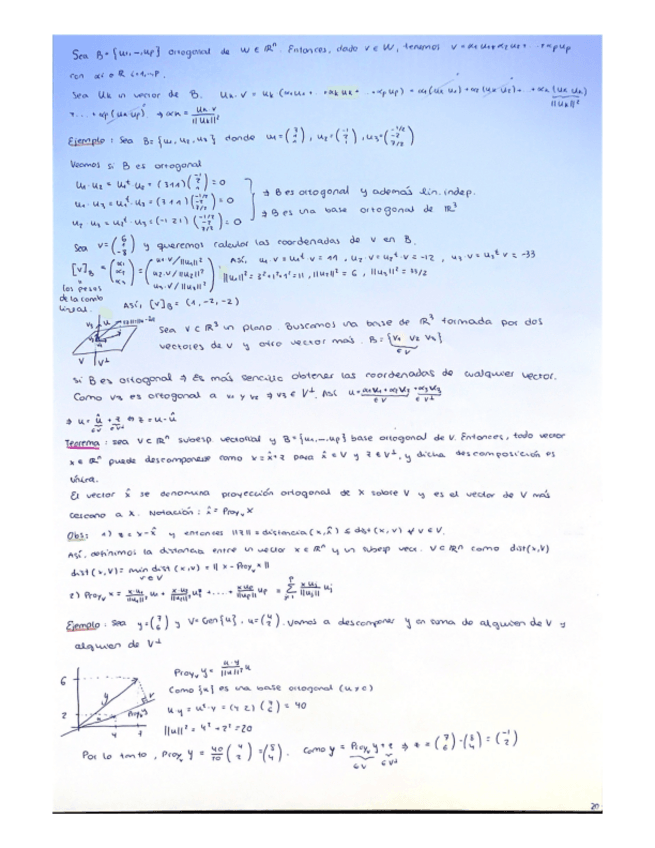 Sea B={u₁,…,up} ortogonal de W ∈ ℝⁿ. Entonces, dado v ∈ W, tenemos v = α₁u₁+α₂u₂+…+αpup
con αi ∈ ℝ i=1,…,p.
Sea Uk un vector de B. Uk·v = uk(α₁u₁+…+αkuk+…+αpup) = α₁(uk u₁)+α₂(uk u₂)+…+αk(uk uk)
+…+αp(uk up). ⇒ αk = uk·v/||uk||²
||uk||²
Ejemplo: Sea B={u₁,u₂,u₃} donde u₁=(3 1 1), u₂=(-1 2 1), u₃=(-1/2 -2 7/2)
Veamos si B es ortogonal
u₁·u₂ = u₁ᵗ·u₂ = (3 1 1)(-1 2 1) = 0
u₁·u₃ = u₁ᵗ·u₃ = (3 1 1)(-1/2 -2 7/2) = 0
u₂·u₃ = u₂ᵗ·u₃ = (-1 2 1)(-1/2 -2 7/2) = 0
⇒ B es ortogonal y además lin. indep.
⇒ B es una base ortogonal de ℝ³
Sea v=(6 1 -8) y queremos calcular las coordenadas de v en B.
[v]B = (α₁ α₂ α₃) = (u₁·v/||u₁||² u₂·v/||u₂||² u₃·v/||u₃||²). Así, u₁·v = u₁ᵗ·v = 11, u₂·v = u₂ᵗ·v = -12, u₃·v = u₃ᵗ v = -33
||u₁||² = 3²+1²+1² = 11, ||u₂||² = 6, ||u₃||² = 33/2
los pesos
de la comb
lineal.
Así, [v]B = (1,-2,-2)
Sea V ⊂ ℝ³ un plano. Buscamos una base de ℝ³ formada por dos
vectores de V y otro vector más. B={v₁ v₂ v₃}
∈V
V V⊥
Si B es ortogonal ⇒ Es más sencillo obtener las coordenadas de cualquier vector.
Como v₃ es ortogonal a v₁ y v₂ ⇒ v₃ ∈ V⊥. Así u = α₁v₁+α₂v₂+α₃v₃
∈V ∈V⊥
⇒ u = û + z ⇔ z = u-û
∈V ∈V⊥
Teorema: Sea V⊂ℝⁿ subesp. vectorial y B={u₁,…,up} base ortogonal de V. Entonces, todo vector
x ∈ ℝⁿ puede descomponerse como x = x̂+z para x̂ ∈ V y z ∈ V⊥, y dicha descomposición es
única.
El vector x̂ se denomina proyección ortogonal de x sobre V y es el vector de V más
cercano a x. Notación: x̂ = Proyᵥ x
Obs: 1) z = x-x̂ y entonces ||z|| = distancia(x,x̂) ≤ dist(x,v) ∀ v ∈ V.
Así, definimos la distancia entre un vector x ∈ ℝⁿ y un subesp vec. V⊂ℝⁿ como dist(x,V)
dist(x,V) = min dist(x,v) = ||x-Proyᵥ x||
v∈V
2) Proyᵥ x = x·u₁/||u₁||² u₁ + x·u₂/||u₂||² u₂ + … + x·up/||up||² up = Σ x·uj/||uj||² uj
Ejemplo: Sea y=(7 6) y V=Gen{u}, u=(4 2). Vamos a descomponer y en suma de alguien de V y
alguien de V⊥
Proyᵥ y = u·y/||u||² u
Como {u} es una base ortogonal (u≠0)
u·y = uᵗ·y = (4 2)(7 6) = 40
||u||² = 4²+2² = 20
6
2
y
V
Proyᵥy
4 7
Por lo tanto, Proyᵥ y = 40/20 (4 2) = (8 4). Como y = Proyᵥ y + z ⇒ z = (7 6)-(8 4) = (-1 2)
∈V ∈V⊥
20